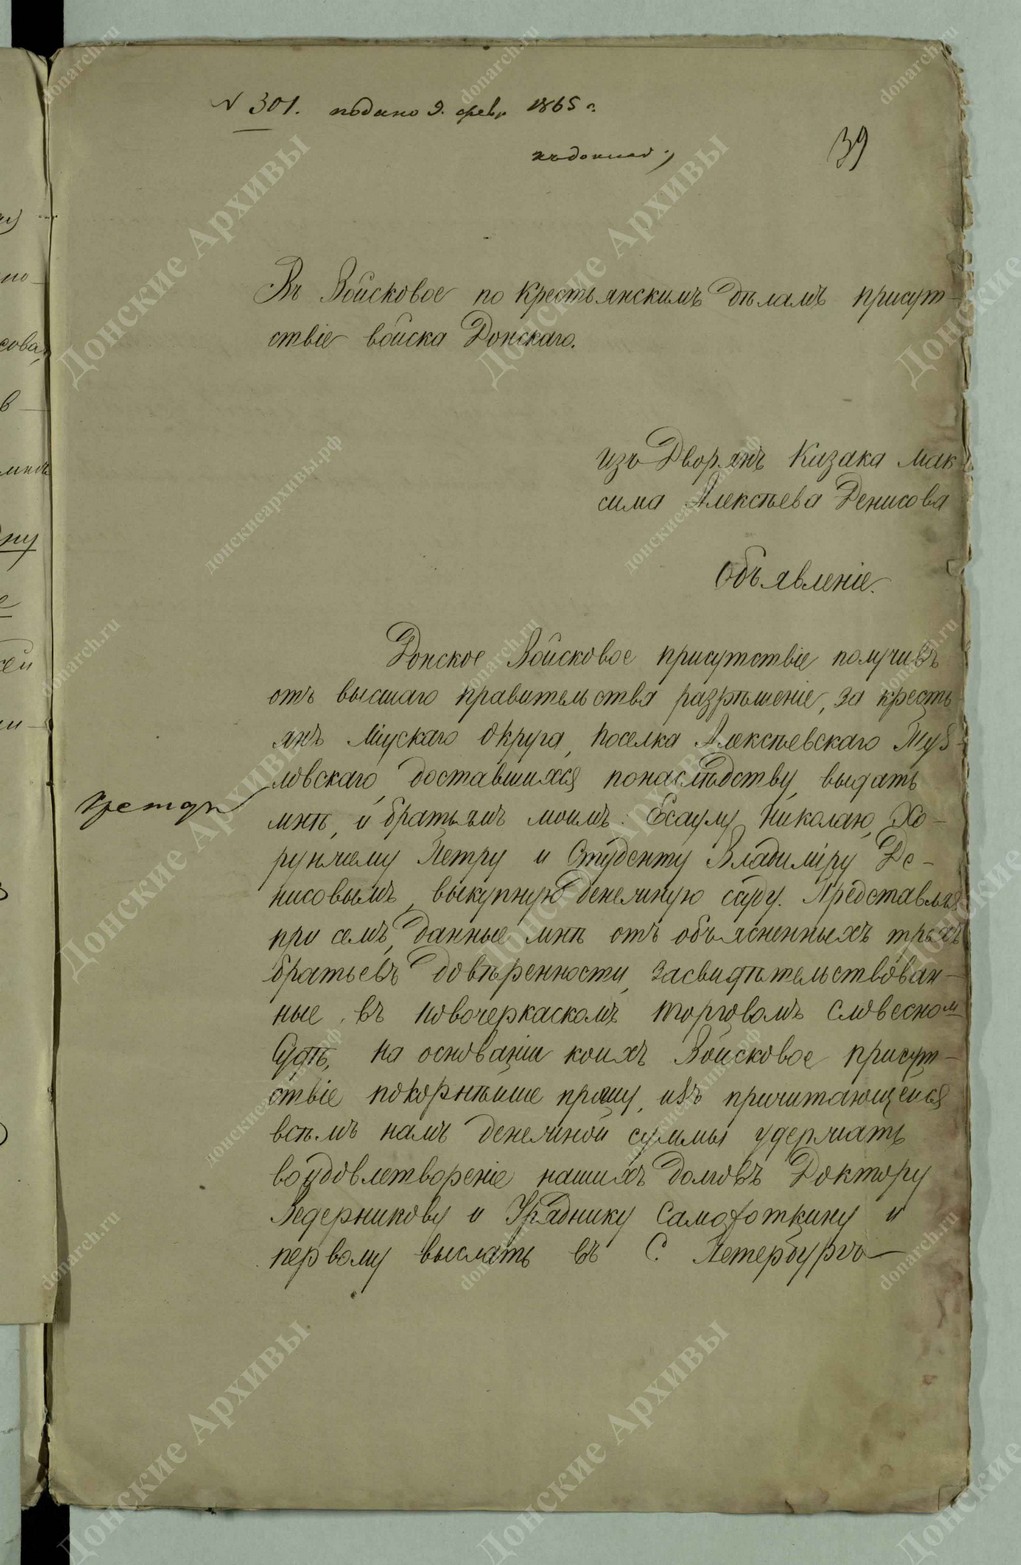 № 301. подано 9. февр 1865 г.
къ докладу
39
Въ Войсковое по крестьянскимъ дѣламъ присут-
ствіе войска Донскаго.
изъ Дворянъ Казака Мак-
сима Алексѣева Денисова
Объявленіе.
Донское Войсковое присутствіе получивъ
отъ высшаго правительства разрѣшеніе, за кресть-
янъ Міускаго Округа, поселка Алексѣевскаго
ловскаго, доставшихся понаслѣдству, выдать
мнѣ, и братьямъ моимъ: Есаулу Николаю, Хо-
рунжему Петру и Студенту Владиміру Де-
нисовымъ, выкупную денежную суду. Представляя
при семъ, данные мнѣ отъ объясненныхъ трехъ
братьевъ довѣренности, засвидѣтельствован-
ные въ Новочеркаскомъ торговомъ словесномъ
Судѣ, на основаніи коихъ Войсковое присут-
ствіе покорнѣише прошу, изъ причитающейся
всѣмъ намъ денежной суммы удержать
воудовлетвореніе нашихъ долговъ Доктору
Ведерникову и Уряднику Самохоткину и
первому выслать въ С. Петербургъ
Донские Архивы
donarch.ru
донскиеархивы.рф